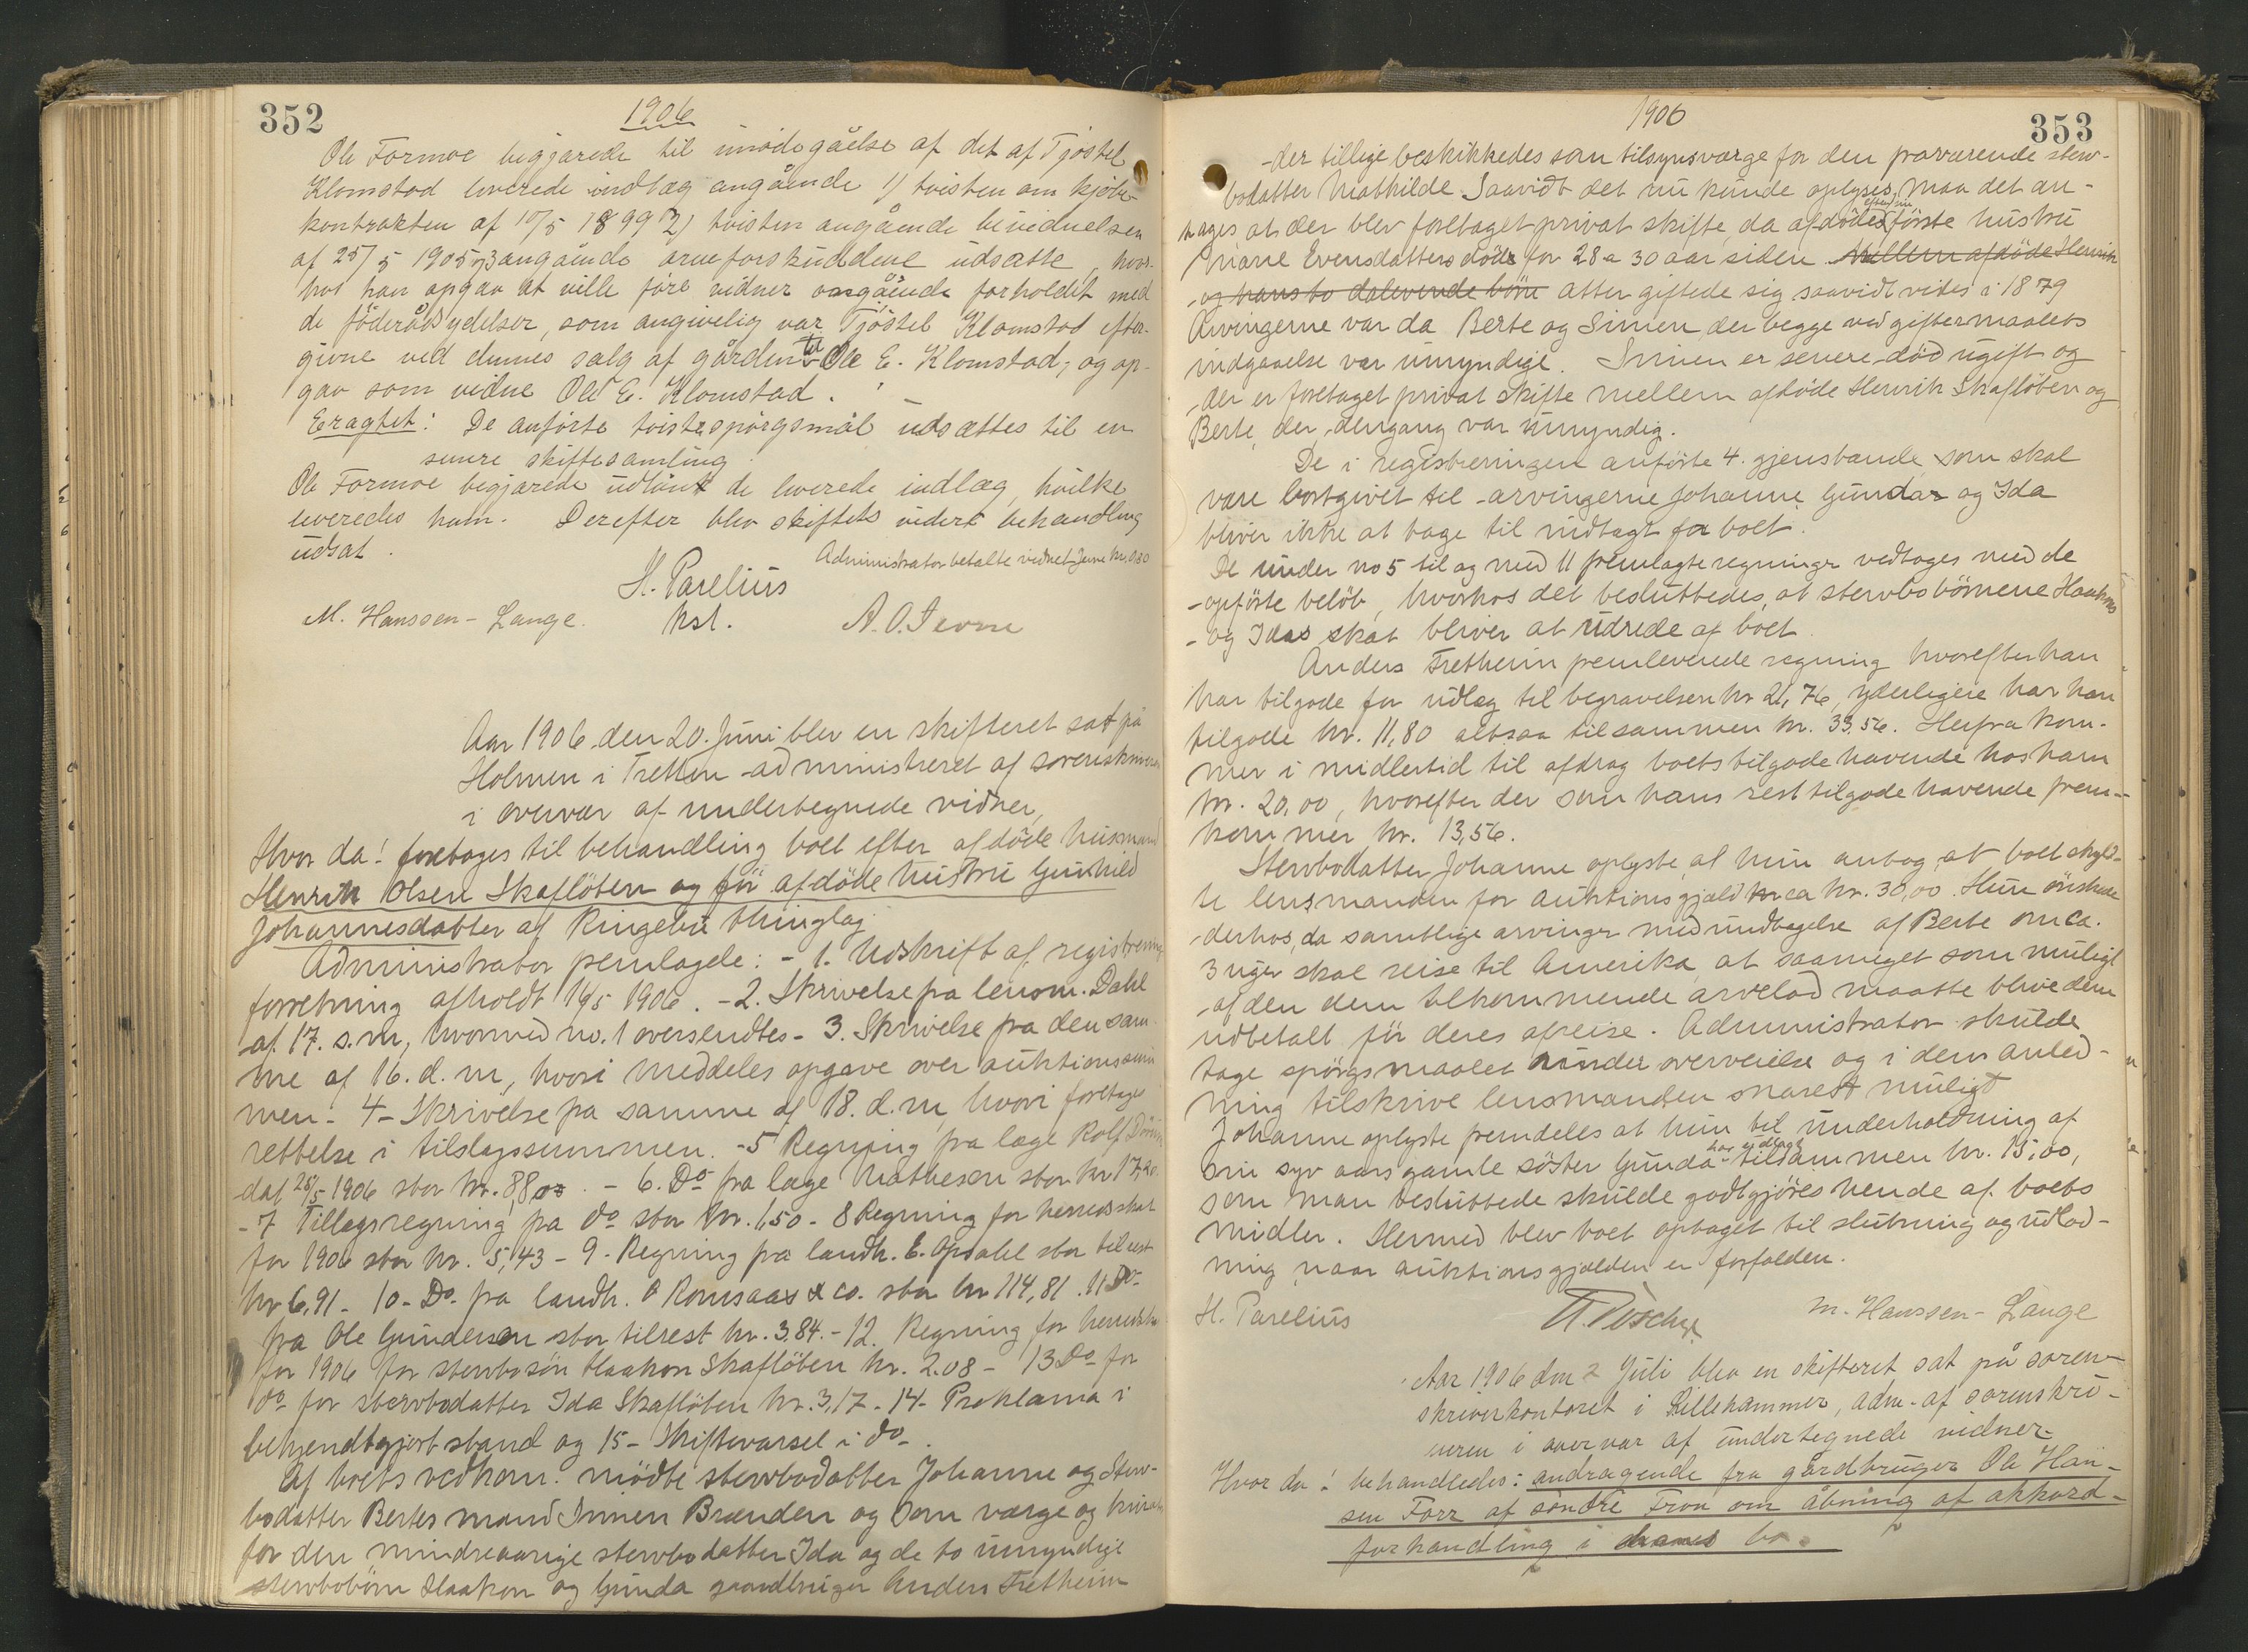 352
1906
Ole Formoe begjærede til imødegåelse af det af Tjøstel
Klomstad leverede indlæg angående 1) tvisten om kjøbe-
kontrakten af 10/5 1899 2) tvisten angående bevidnelsen
af 25/5 1905 3 angående arveforskuddene udsatte, hvor-
hos han opgav at ville føre vidner angående forholdet med
de föderådsydelser, som angivelig var Tjöstel Klomstad efter-
givne ved dennes salg af gården til Ole E. Klomstad, og op-
gav som vidne Ole E. Klomstad.
Eragtet: De anførte tvistespörgsmål udsættes til en
senere skiftesamling
Ole Formoe begjærede udlånt de leverede indlæg, hvilke
leveredes ham. Derefter blev skiftets videre behandling
udsat.
Administrator betalte vidnet Jevne kr. 0.80
H. Parelius
M. Hanssen-Lange. kst. A. O. Jevne
Aar 1906 den 20. Juni blev en skifteret sat på
Holmen i Tretten administreret af sorenskriveren
i overvær af undertegnede vidner,
Hvor da! foretoges til behandling boet efter afdöde husmand
Henrik Olsen Skaflöten og för afdöde hustru Gunhild
Johannesdatter af Ringebu thinglag.
Administrator fremlagde: - 1. Udskrift af registrerings
forretning afholdt 14/5 1906. - 2. Skrivelse fra lensm. Dahl
af 17. s.m, hvorved no. 1 oversendtes - 3. Skrivelse fra den sam-
me af 16. d. m, hvori meddeles opgave over auktionssum
men - 4 - Skrivelse fra samme af 18. d. m, hvori foretages
rettelse i tilslagssummen. - 5 Regning fra læge Rolf
dat 28/5 1906 stor kr. 88,00. - 6. Do fra læge Mathesen stor kr 17,20
- 7 Tillægsregning fra do stor kr. 1,50 - 8 Regning for herredsskat
for 1906 stor kr. 5,43 - 9 - Regning fra landh. E. Opsahl stor tilrest
kr 6,91 - 10 - Do. fra landh. O Romsaas & co. stor kr 114,81. 11 Do
fra Ole Gundersen stor tilrest kr. 3.84. - 12. Regning for herredsskat
for 1906 for stervbosön Haakon Skaflöten kr. 2.08 - 13 Do for
do for stervbodatter Ida Skaflöten kr. 3,17 - 14 - Proklama i
behændtgjort stand og 15 - Skiftevarsel i do.
Af boets vedkom. mödte stervbodatter Johanne og Sterv-
bodatter Bertes mand Simen Brænden og som værge og kurator
for den mindreaarige stervbodatter Ida og de to umyndige
stervbobörn Haakon og Gunda gaardbruger Anders Fretheim
1906
353
- der tillige beskikkedes som tilsynsværge for den fraværende sterv-
bodatter Mathilde. Saavidt det nu kunde oplyses, maa det an-
tages at der blev foretaget privat skifte, da afdödes første hustru
efter sin
Marie Evensdatters död for 28 a 30 aar siden. Mellem afdöde Henrik
og hans to dalevende börn atter giftede sig saavidt vides i 1879
Arvingerne var da Berte og Simen, der begge ved giftermaalets
indgaaelse var umyndige. Simen er senere död ugift og
der er foretaget privat skifte mellem afdöde Henrik Skaflöten og
Berte, der dengang var umyndig.
De i registreringen anførte 4. gjenstande som skal
være bortgivet til arvingerne Johanne, Gunda og Ida
bliver ikke at tage til indtægt for boet.
De under no 5 til og med 11 fremlagte regninger vedtages med de
- opförte belöb, hvorhos det besluttedes, at stervbobörnene Haakons
- og Idas skat bliver at udrede af boet.
Anders Fretheim fremleverede regning hvorefter han
har tilgode for udlæg til begravelsen kr 21,76, yderligere har han
tilgode kr. 11,80 altsaa tilsammen kr. 33,56. Herfra kom-
mer i midlertid til afdrag boets tilgodehavende hos ham
kr. 20,00, hvorefter der som hans resttilgodehavende frem-
kommer kr. 13,56.
Stervbodatter Johanne oplyste, at hun antog at boet skyld-
te lensmanden for auktionsgjæld ca kr. 30,00. Hun önskede
derhos, da samtlige arvinger med undtagelse af Berte om ca.
3 uger skal reise til Amerika at saameget som muligt
af den dem tilkommende arvelod maatte blive dem
udbetalt för deres afreise. Administrator skulde
tage spörgsmaalet under overveielse og i dens anled-
ning tilskrive lensmanden snarest muligt
Johanne oplyste fremdeles at hun til underholdning af
sin syv aars gamle söster Gunda har udlagt tilsammen kr. 15,00,
som man besluttede skulde godtgjöres hende af boets
midler. Hermed blev boet optaget til slutning og udlod-
ning naar auktionsgjælden er forfalden.
H. Parelius M. Hanssen-Lange
Aar 1906 den 2 Juli blev en skifteret sat på soren-
skriverkontoret i Lillehammer, adm. af sorenskri-
veren i overvær af undertegnede vidner
Hvor da! behandledes: andragende fra gårdbruger Ole Han-
sen Forr af söndre Fron om åbning af akkord-
forhandling i hans bo.